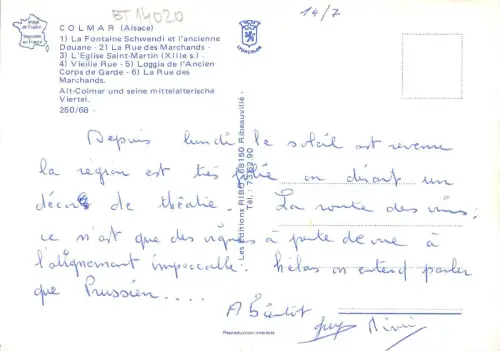 Image de France
Imprimée en France
BT 14020
14/7
COLMAR (Alsace)
1) La Fontaine Schwendi et l'ancienne
Douane - 2) La Rue des Marchands -
3) L'Eglise Saint-Martin (XIIIe s.) -
4) Vieille Rue - 5) Loggia de l'Ancien
Corps de Garde - 6) La Rue des
Marchands.
Alt-Colmar und seine mittelalterische
Viertel.
250/68 -
Les Editions RIBO - 68150 Ribeauvillé -
Tél.: 73.62.90
Depuis lundi le soleil est revenu
la région est très on dirait un
décor de théâtre. La route des vins:
ce n'est que des vignes à perte de vue à
l'alignement impeccable. hélas on entend parler
que Prussien....
A Bientôt
Reproduction interdite